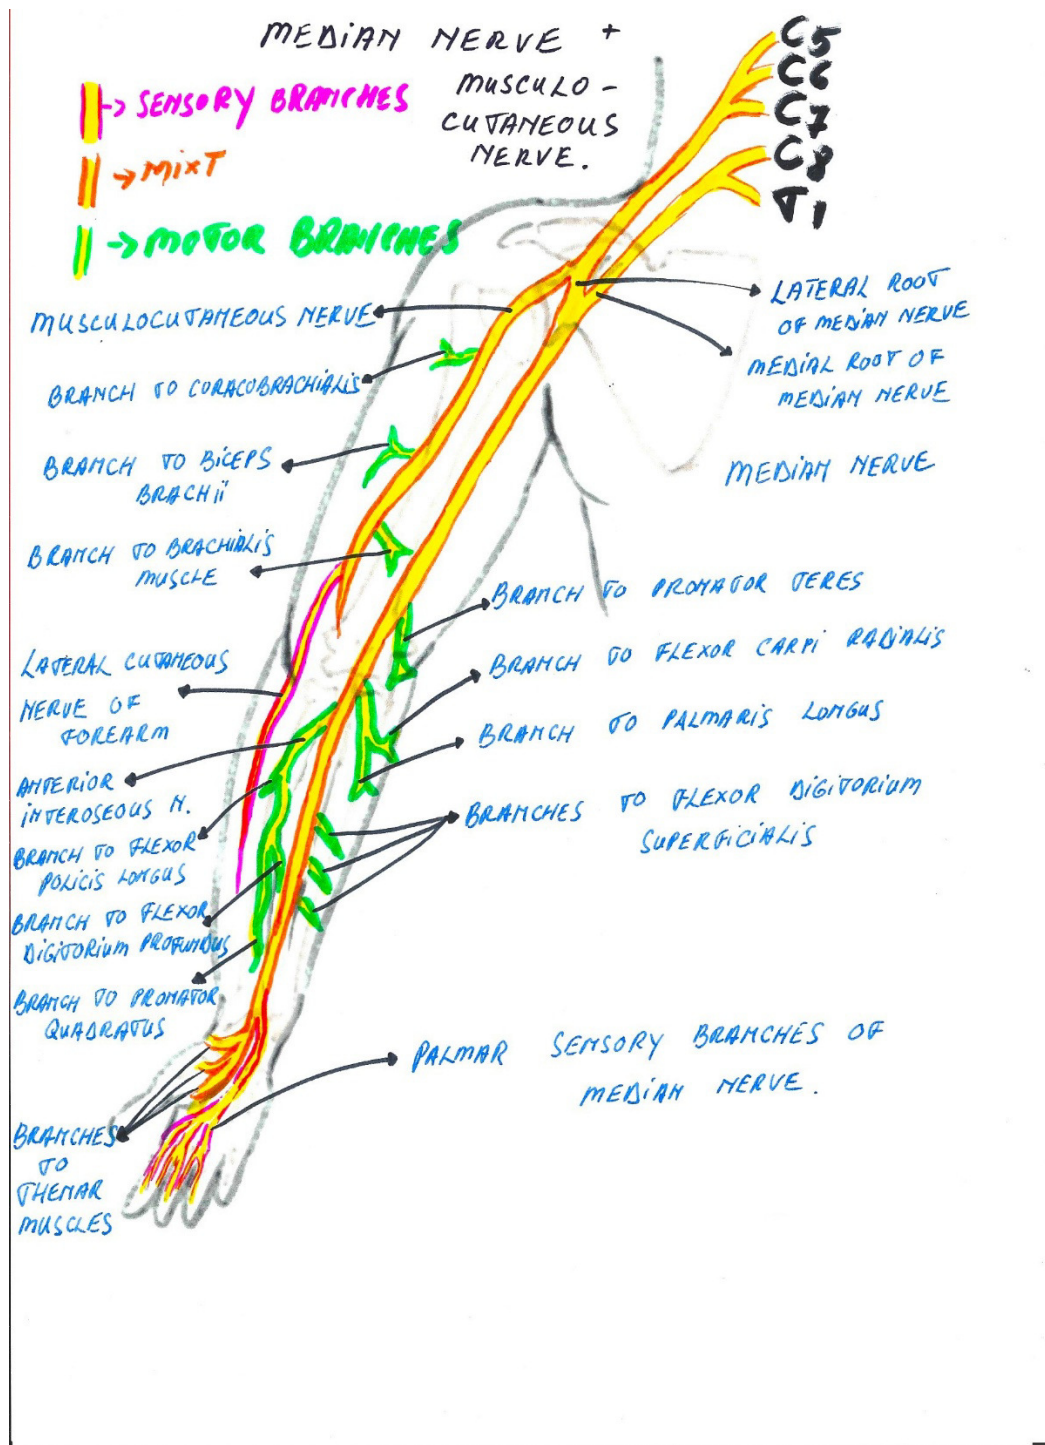 MEDIAN NERVE +
MUSCULO-
CUTANEOUS
NERVE.
C5
C6
C7
C8
T1
→ SENSORY BRANCHES
→ MIXT
→ MOTOR BRANCHES
MUSCULOCUTANEOUS NERVE
BRANCH TO CORACOBRACHIALIS
BRANCH TO BICEPS
BRACHII
BRANCH TO BRACHIALIS
MUSCLE
LATERAL CUTANEOUS
NERVE OF
FOREARM
ANTERIOR
INTEROSEOUS N.
BRANCH TO FLEXOR
POLICIS LONGUS
BRANCH TO FLEXOR
DIGITORIUM PROFUNDUS
BRANCH TO PRONATOR
QUADRATUS
BRANCHES
TO
THENAR
MUSCLES
LATERAL ROOT
OF MEDIAN NERVE
MEDIAL ROOT OF
MEDIAN NERVE
MEDIAN NERVE
BRANCH TO PRONATOR TERES
BRANCH TO FLEXOR CARPI RADIALIS
BRANCH TO PALMARIS LONGUS
BRANCHES TO FLEXOR DIGITORIUM
SUPERFICIALIS
PALMAR SENSORY BRANCHES OF
MEDIAN NERVE.